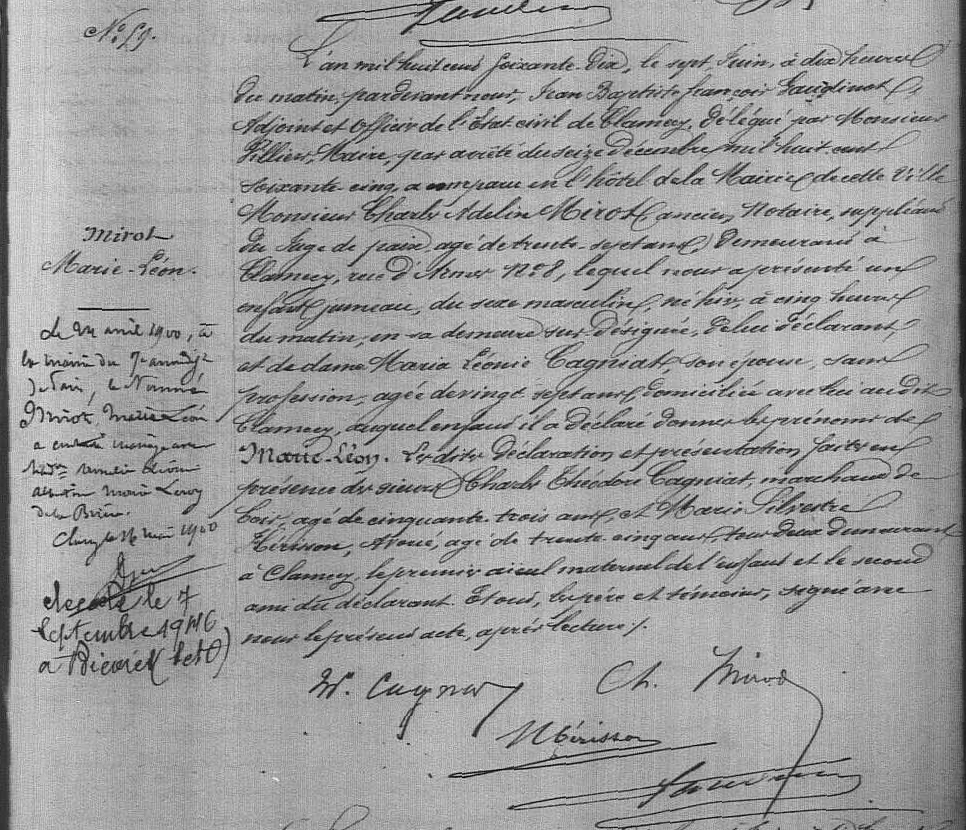 N° 59.
Mirot
Marie-Léon.
Le 24 avril 1900, à
la mairie du 7e arrondt
de Paris, le nommé
Mirot, Marie Léon
a contracté mariage avec
Marie Leroy
de la Brière.
Clamecy le 16 mai 1900
décédé le 7
Septembre 1946
à Bièvres
L'an mil huit cent soixante-dix, le sept Juin, à dix heures
du matin, pardevant nous, Jean Baptiste François
Adjoint et Officier de l'Etat civil de Clamecy, délégué par Monsieur
Millier, Maire, par arrêté du seize décembre mil huit cent
soixante-cinq, a comparu en l'hôtel de la Mairie de cette Ville
Monsieur Charles Adelin Mirot, ancien Notaire, suppléant
du Juge de paix, agé de trente-sept ans, demeurant à
Clamecy, rue d'Armes N° 8, lequel nous a présenté un
enfant jumeau, du sexe masculin, né hier, à cinq heures
du matin, en sa demeure sus-désignée, de lui déclarant,
et de dame Maria Léonie Cagniat, son épouse, sans
profession, agée de vingt-sept ans, domiciliée avec lui au dit
Clamecy, auquel enfant il a déclaré donner les prénoms de
Marie-Léon. Lesdites déclaration et présentation faites en
présence des sieurs Charles Théodore Cagniat, marchand de
bois, agé de cinquante-trois ans, et Marie Silvestre
Hérisson, Avoué, agé de trente-cinq ans, tous deux demeurant
à Clamecy, le premier aïeul maternel de l'enfant et le second
ami du déclarant. Et ont, les père et témoins, signé avec
nous le présent acte, après lecture.
Cagniat
Ch. Mirot
Hérisson